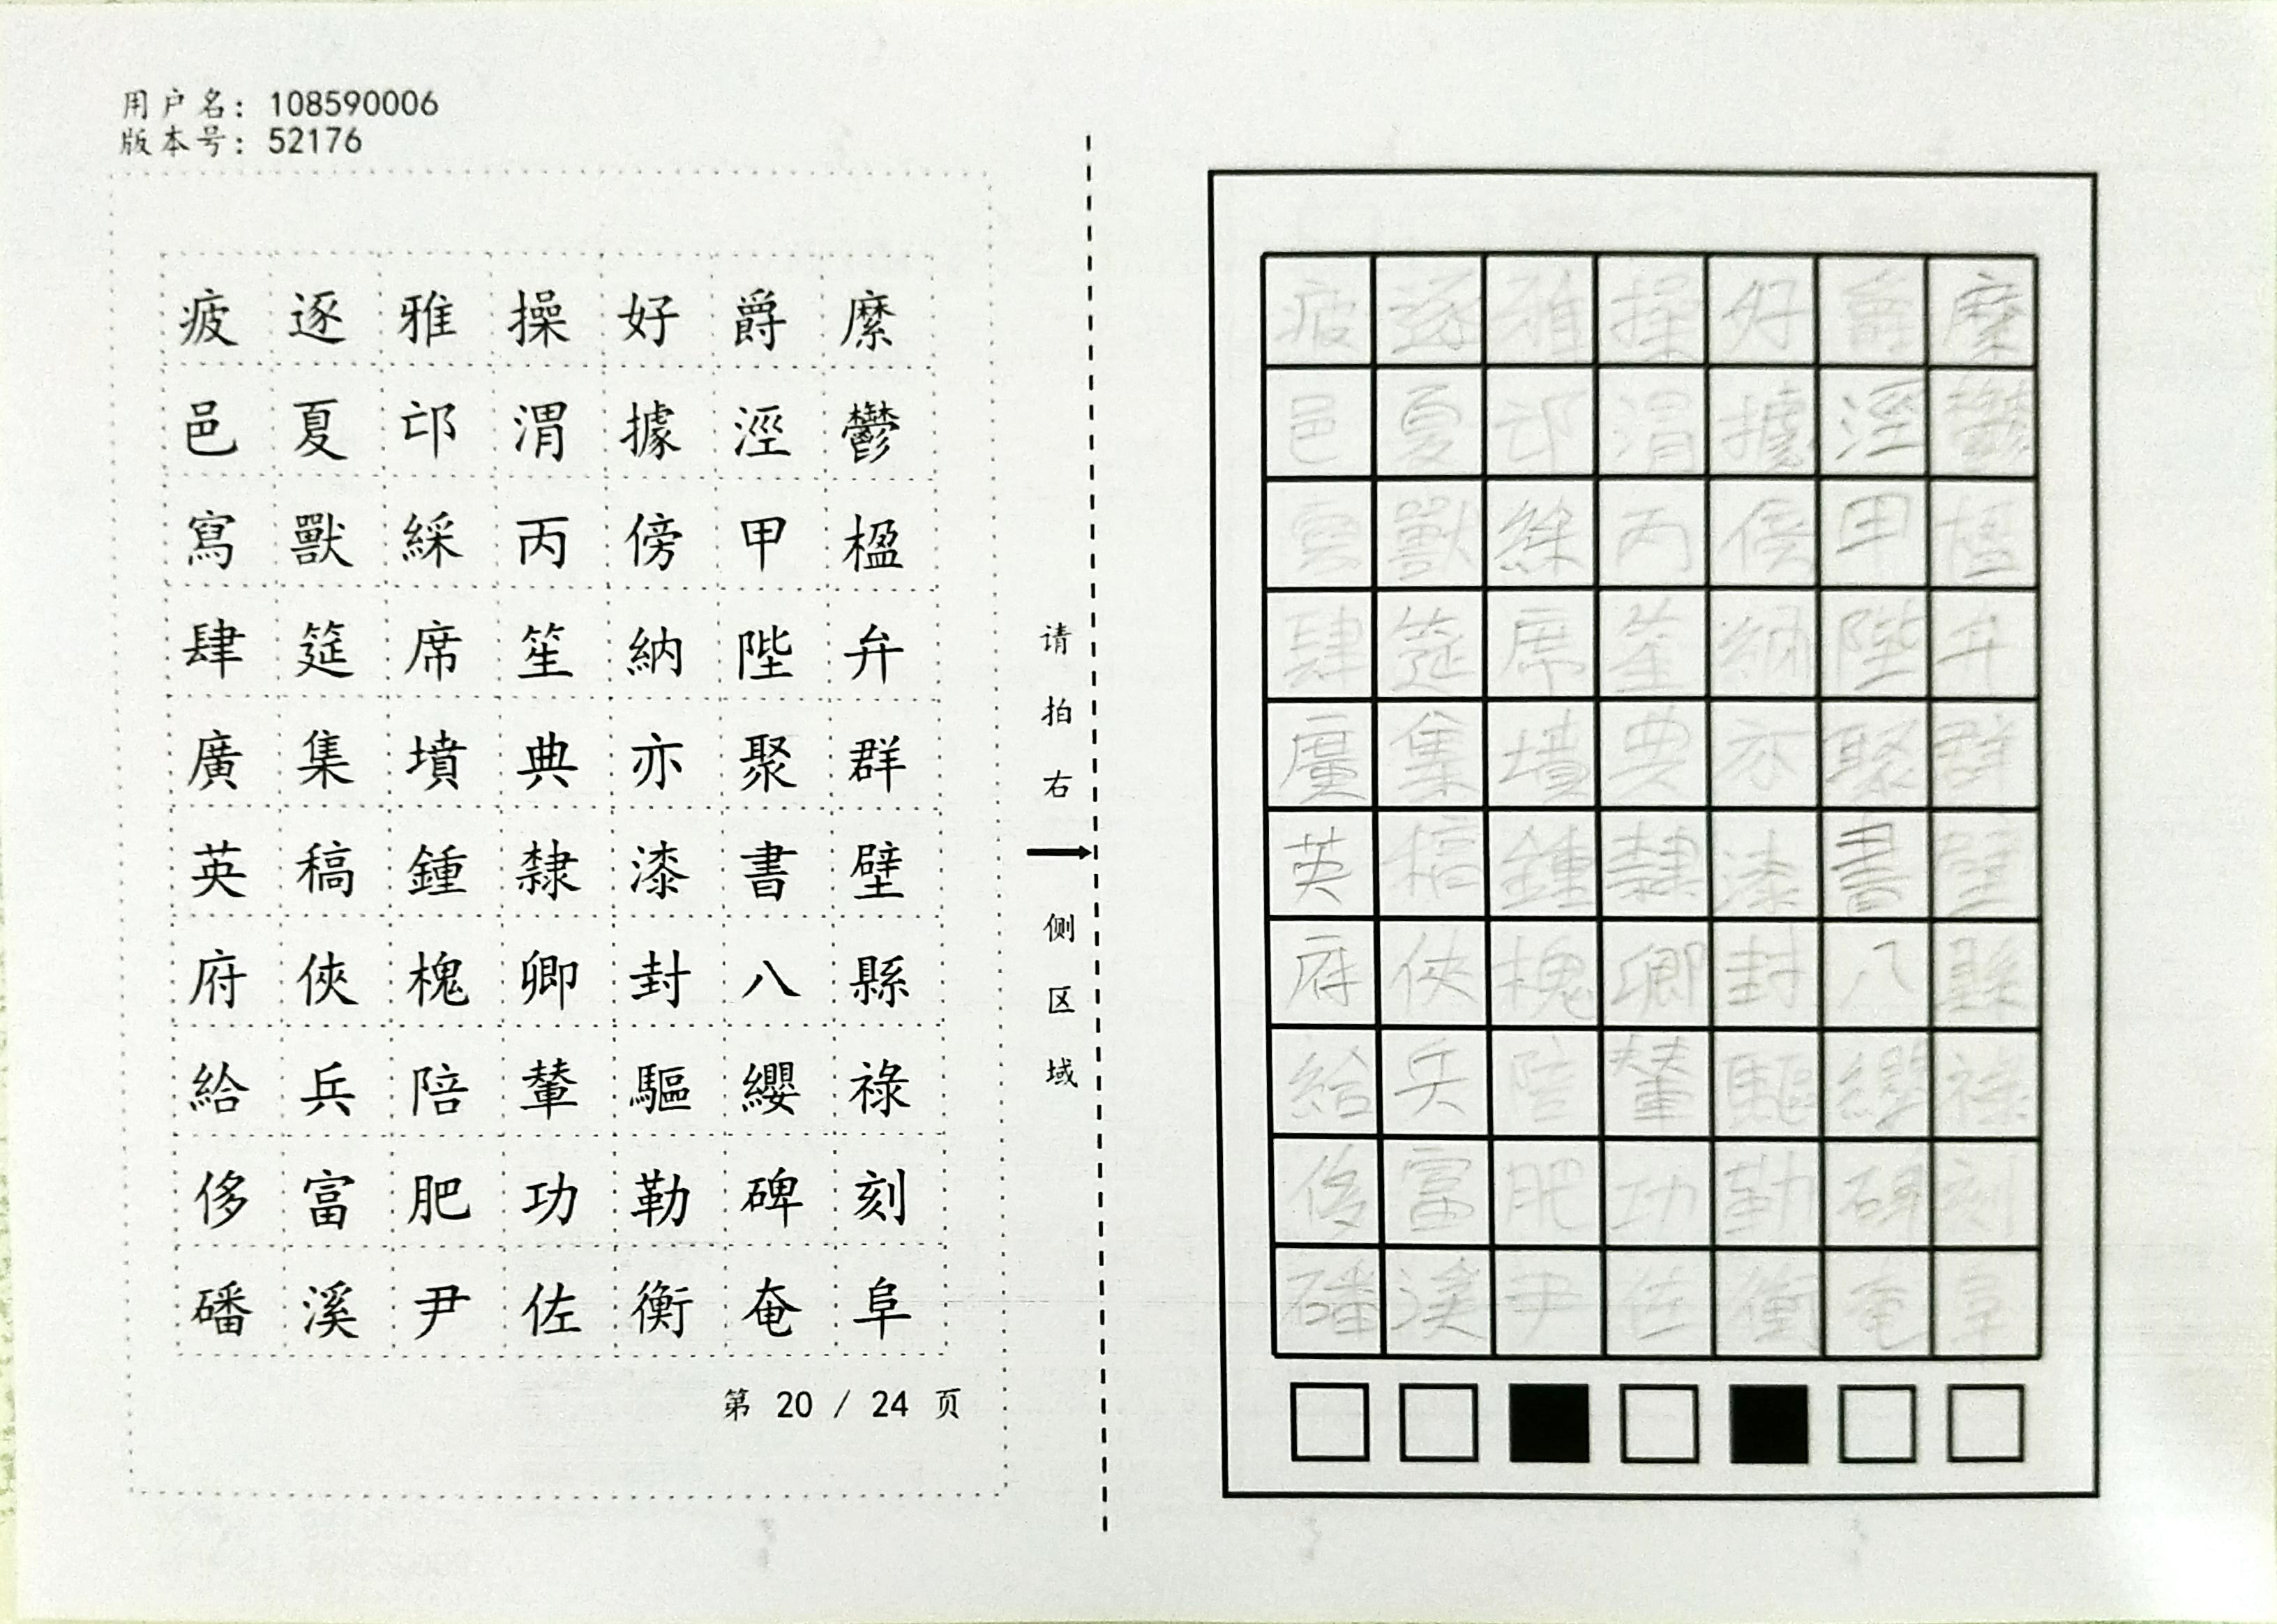 用户名: 108590006
版本号: 52176
疲逐雅操好爵縻
邑夏邙渭據涇鬱
寫獸綵丙傍甲楹
肆筵席笙納陛弁
廣集墳典亦聚群
英稿鍾隸漆書壁
府俠槐卿封八縣
給兵陪輦驅纓祿
侈富肥功勒碑刻
磻溪尹佐衡奄阜
第 20 / 24 页
请拍右
侧区域
疲逐雅操好爵縻
邑夏邙渭據涇鬱
寫獸綵丙傍甲楹
肆筵席笙納陛弁
廣集墳典亦聚群
英稿鍾隸漆書壁
府俠槐卿封八縣
給兵陪輦驅纓祿
侈富肥功勒碑刻
磻溪尹佐衡奄阜